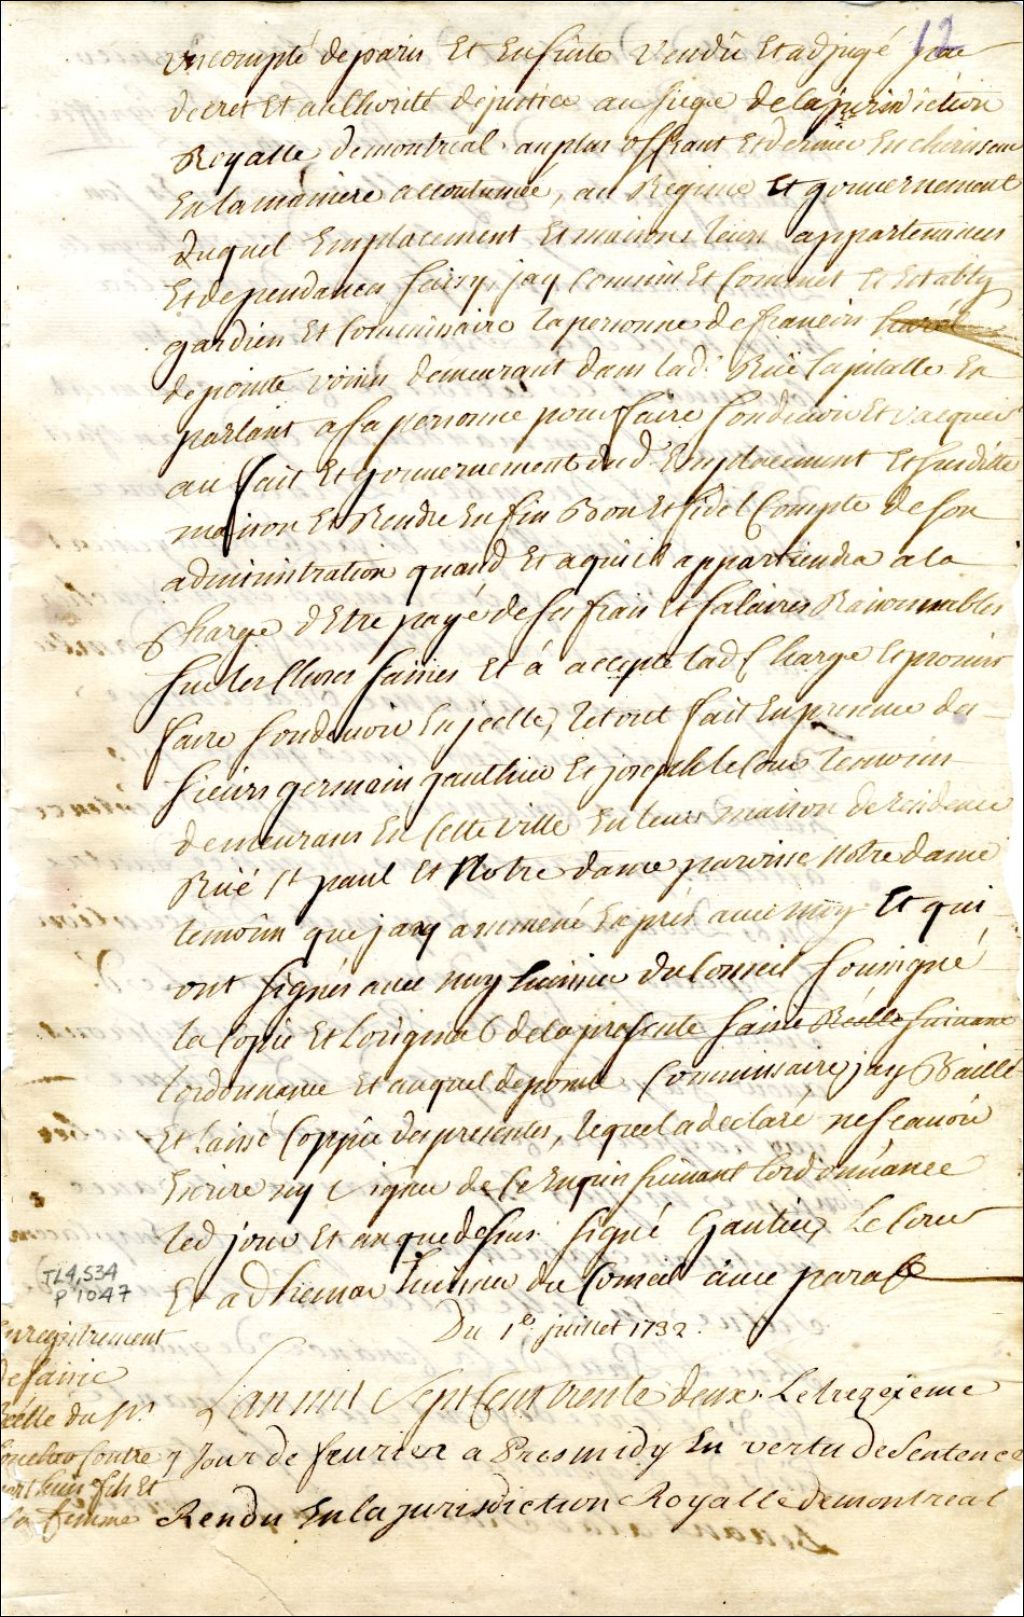 12
un compte de paris Et Ensuite Vendu Et adjugé par
decret Et authorité de justice au siege de la jurisdiction
Royalle de montreal au plus offrant Et dernier Encherisseur
En la maniere accoutumée, au Regime Et gouvernement
duquel Emplacement Et maisons leurs appartenances
Et dependances saisy, jay Commis Et Commet Et Estably
gardien Et Commissaire la personne de francois
de pointe voisin demeurant dans lad. Ruë Capitalle En
parlant a sa personne pour faire son devoir Et vacquer
au fait Et gouvernement dud Emplacement Et susditte
maison Et Rendre En fin Bon Et fidel Compte de son
administration quand Et a quil appartiendra a la
Charge d'Etre payé de ses frais Et salaires Raisonnables
sur les Choses saisies Et á accepté lad Charge Et promis
faire son devoir En jcelle, le tout fait En presence des
sieurs germain gauthier Et joseph le Cour temoins
demeurans En Cette Ville En leurs maison de residence
Ruë st paul Et Notre dame paroisse Notre dame
temoins que jay ammené Exprés avec moy Et qui
ont signés avec moy huissier du Conseil sousigné
la Copie Et Loriginal de la presente saisie Réelle suivant
lordonnance Et auquel depointe Commissaire jay Baillé
Et laissé Coppie des presentes, lequel a declaré ne scavoir
Escrire ny signer de ce Enquis suivant lordonnance
led jour Et an que dessus signé Gautier, Le Cour
Et adhemar huissier du Conseil avec parafe
Du 1er juillet 1732.
TL4,S34
P 1047
Enregistrement
de saisie
Réelle du Sr.
contre
fils Et
sa femme
Lan mil Sept Cent trente deux Le trezeieme
Jour de fevrier a Pres midy En vertu de Sentence
Rendu En la jurisdiction Royalle de montreal